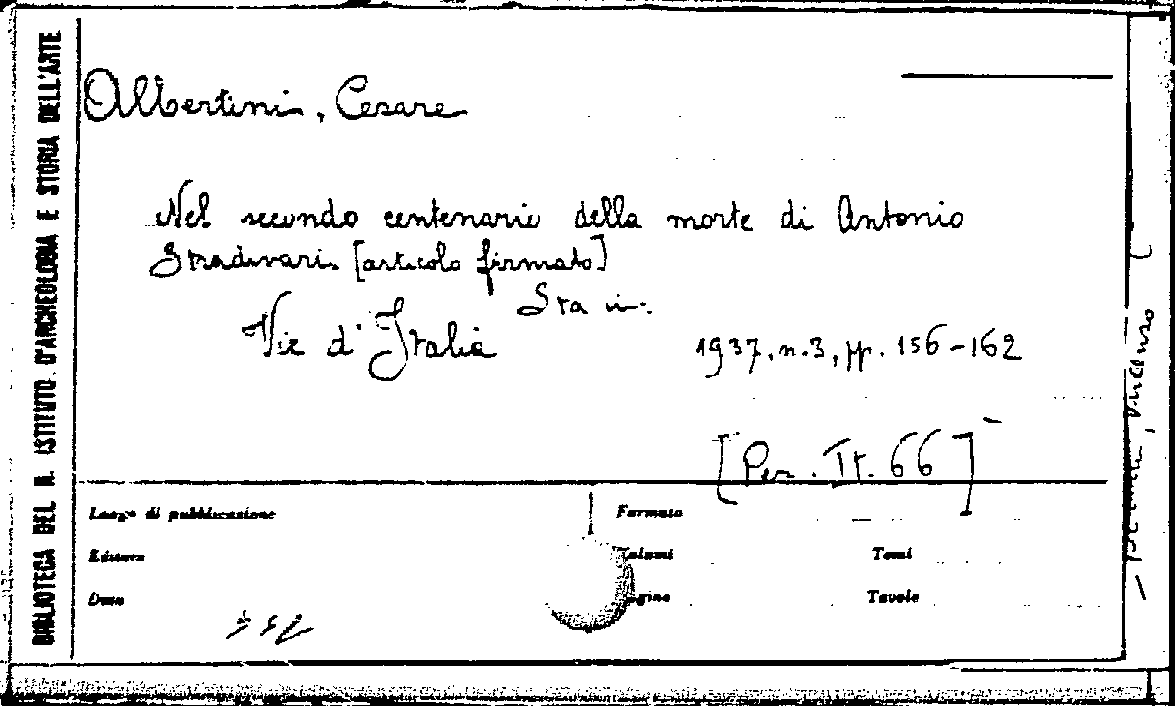 BIBLIOTECA DEL R. ISTITUTO D'ARCHEOLOGIA E STORIA DELL'ARTE
Albertini, Cesare
Nel secondo centenario della morte di Antonio
Stradivari [articolo firmato]
Sta in:
Vie d'Italia 1937, n.3, pp. 156-162
[Per. It. 66]
Luogo di pubblicazione Formato
Editore Volumi Tomi
Data Pagine Tavole